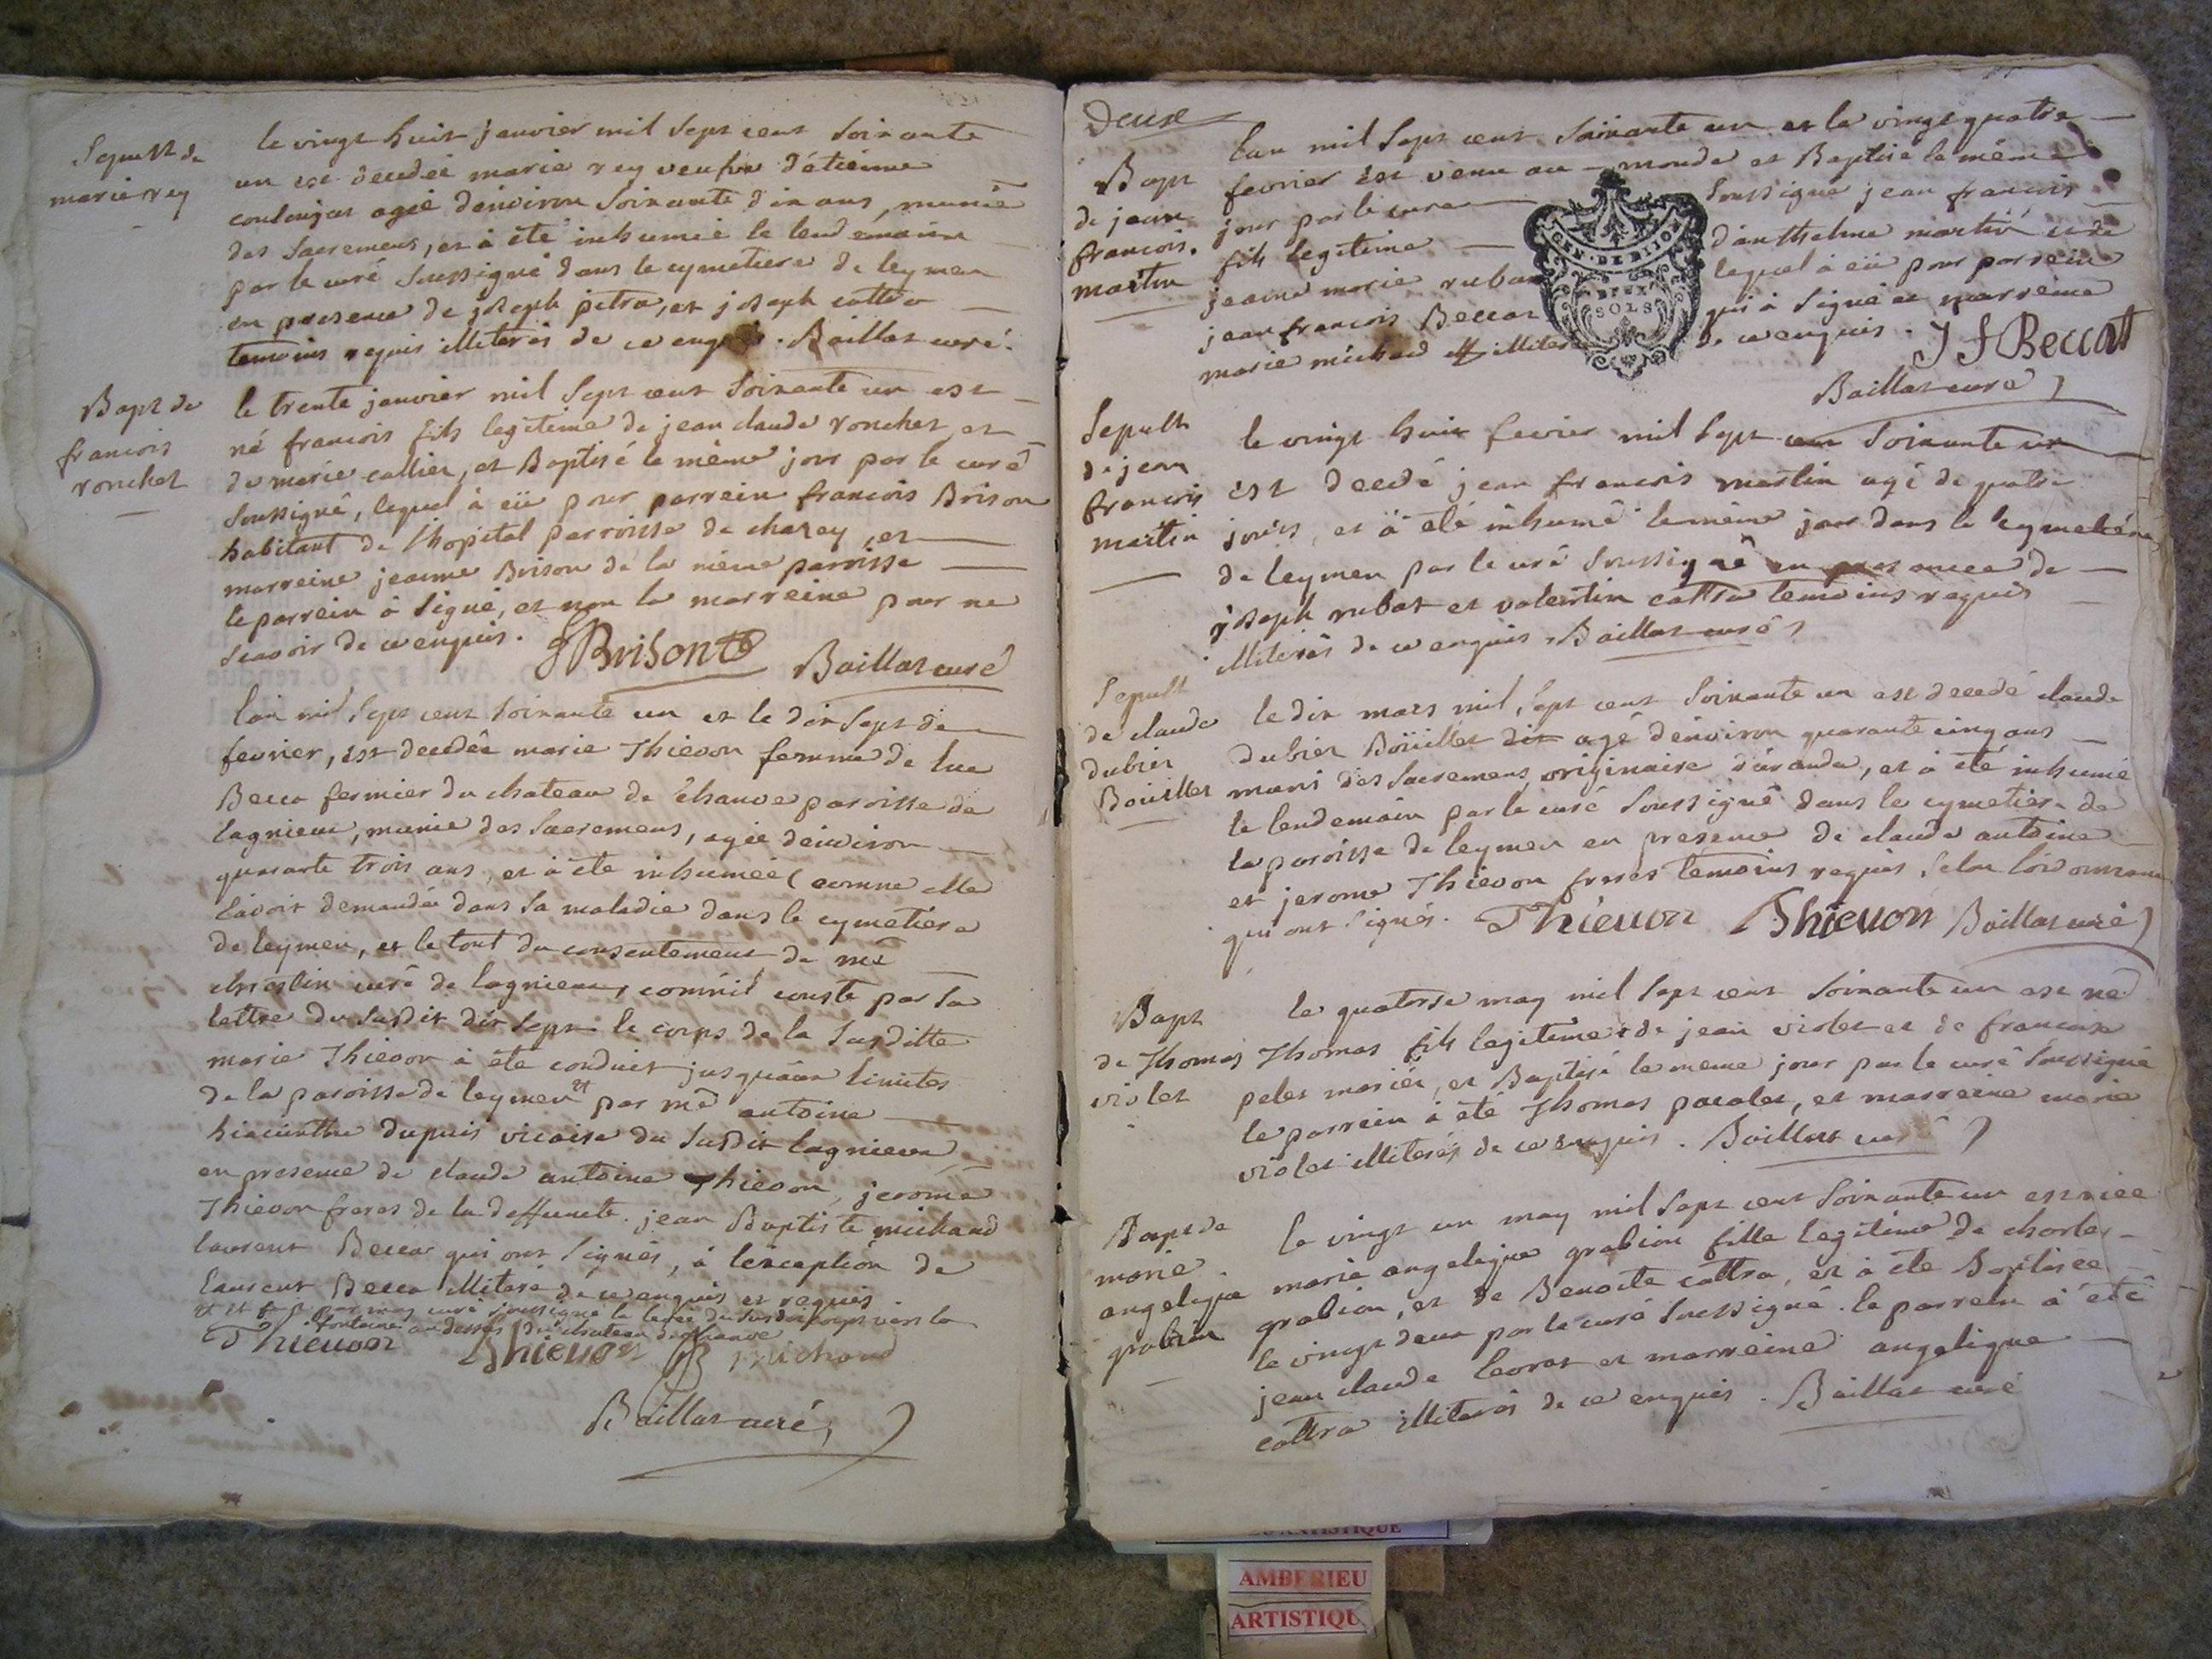 Sepult de
marie rey
le vingt huit janvier mil sept cent soixante
un est decedée marie rey veufve d'étienne
coulonjar agée d'environ soixante dix ans, munie
des sacremens, et à été inhumée le lendemain
par le curé soussigné dans le cymetiere de leymen
en presence de joseph pitra, et joseph cottra
temoins requis illiterés de ce enquis. Baillat curé.
Bapt de
francois
ronchet
le trente janvier mil sept cent soixante un est
né francois fils legitime de jean claude ronchet et
de marie callier, et Baptisé le même jour par le curé
soussigné, lequel à eü pour parrein francois Brison
habitant de l'hopital parroisse de chazey, et
marreine jeanne Brison de la même paroisse
le parrein à signé, et non la marreine pour ne
scavoir de ce enquis.
Brison Baillat curé
L'an mil sept cent soixante un et le dix sept de
fevrier, est decedée marie Thievon femme de luc
Becca fermier du chateau de chanve paroisse de
lagnieux, munie des sacremens, agée denviron
quarante trois ans, et à été inhumée (comme elle
l'avoit demandée dans sa maladie dans le cymetiere
de leymen, et le tout du consentement de mē
chrestin curé de lagnieux, comme il conste par sa
lettre du susdit dix sept. le corps de la susditte
marie Thievon à été conduit jusqu'aux limites
de la paroisse de leymen par mē antoine
hiacinthe dupuis vicaire du susdit lagnieux
en presence de claude antoine Thievon, jerome
Thievon freres de la deffuncte. jean Baptiste michaud
laurent Becca qui ont signés, à l'exception de
laurent Becca illiteré de ce enquis et requis
et par moy curé soussigné la levée du susdit corps vers la
fontaine au dessus du chateau de chanve
Thievon Thievon JB michaud
Baillat curé,
Deux
Bapt
de jean
francois.
martin
L'an mil sept cent soixante un et le vingt quatre
fevrier est venu au monde et Baptisé le même
jour par le curé soussigné jean francois
fils legitime d'anthelme martin et de
jeanne marie rubat lequel à eü pour parrein
jean francois Beccat qui à signé et marreine
marie michaud illiterée de ce enquis. J f Beccat
Baillat curé
GEN. DE DIJON
DEUX
SOLS
Sepult
de jean
francois
martin
le vingt huit fevrier mil sept cent soixante un
est decedé jean francois martin agé de quatre
jours, et à été inhumé le même jour dans le cymetiere
de leymen par le curé soussigné en presence de
joseph rubat et valentin cottra temoins requis
illiterés de ce enquis. Baillat curé
Sepult
de claude
dubier
Boüillet
le dix mars mil sept cent soixante un est decedé claude
dubier Boüillet dit agé d'environ quarante cinq ans
muni des sacremens, originaire d'aranda, et à été inhumé
le lendemain par le curé soussigné dans le cymetiere de
la paroisse de leymen en presence de claude antoine
et jerome Thievon freres temoins requis selon l'ordonnance
qui ont signés. Thievon Thievon Baillat curé
Bapt
de Thomas
violet
le quatorse may mil sept cent soixante un est né
Thomas fils legitime de jean violet et de francoise
pelet mariés, et Baptisé le meme jour par le curé soussigné
le parrein à été Thomas pacalet, et marreine marie
violet illiterés de ce enquis. Baillat curé
Bapt de
marie
angelique
grabion
le vingt un may mil sept cent soixante un est née
marie angelique grabion fille legitime de charles
grabion, et de Benoite cottra, et à été Baptisée
le vingt deux par le curé soussigné. le parrein à été
jean claude leorat et marreine angelique
cottra illiterés de ce enquis. Baillat curé
AMBERIEU
ARTISTIQUE